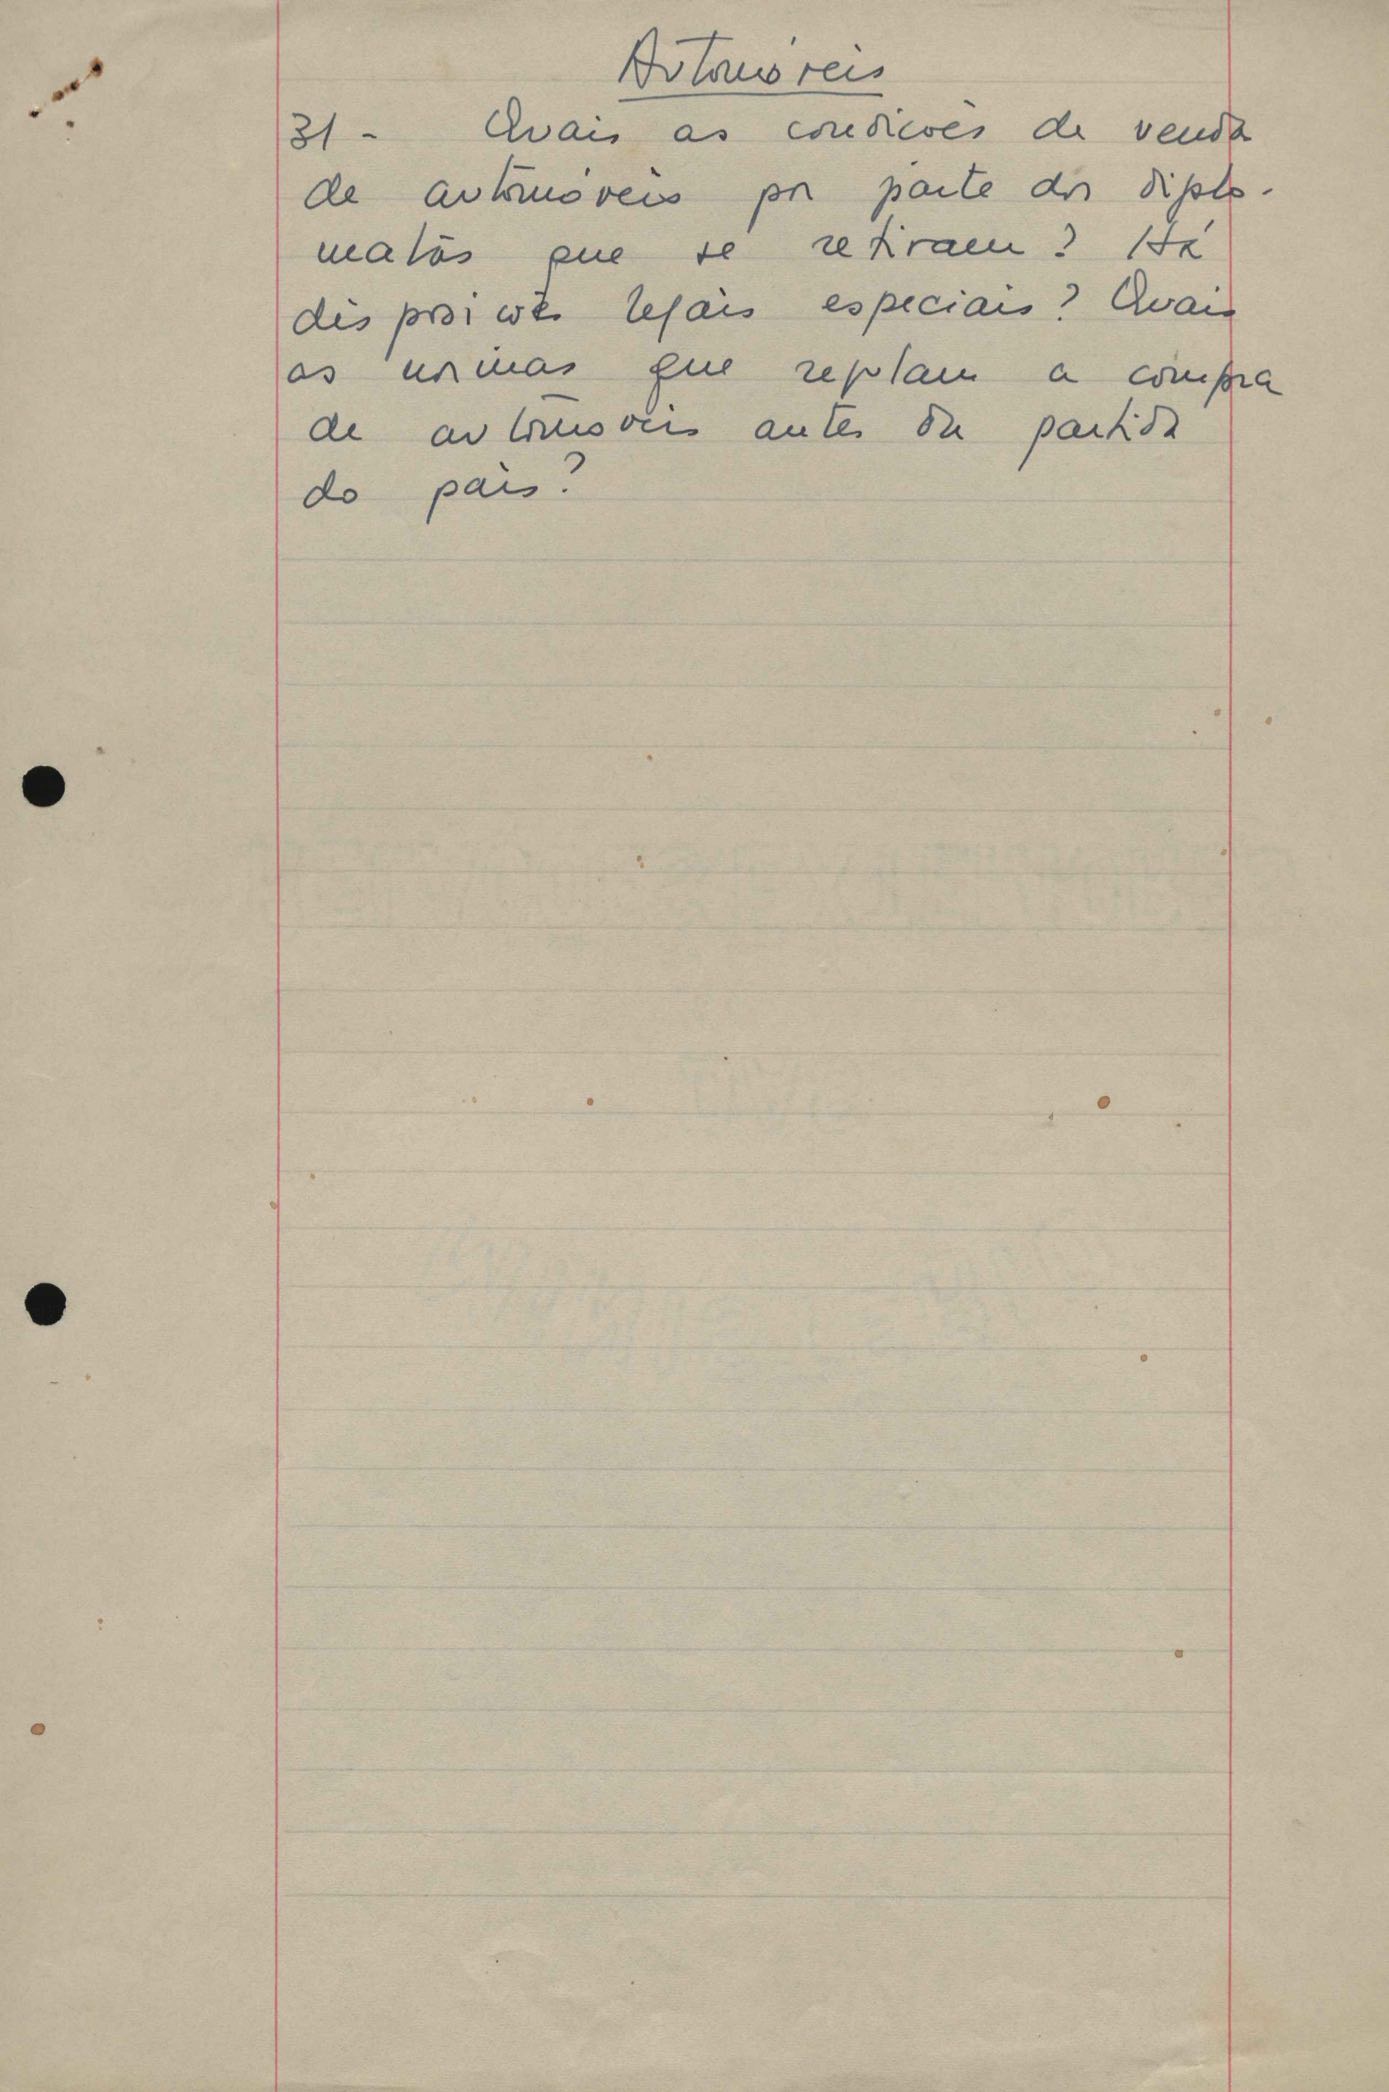 Automóveis
31 - Quais as condições de venda
de automóveis por parte dos diplo-
matas que se retiram? Há
disposições legais especiais? Quais
as normas que regulam a compra
de automóveis antes da partida
do país?